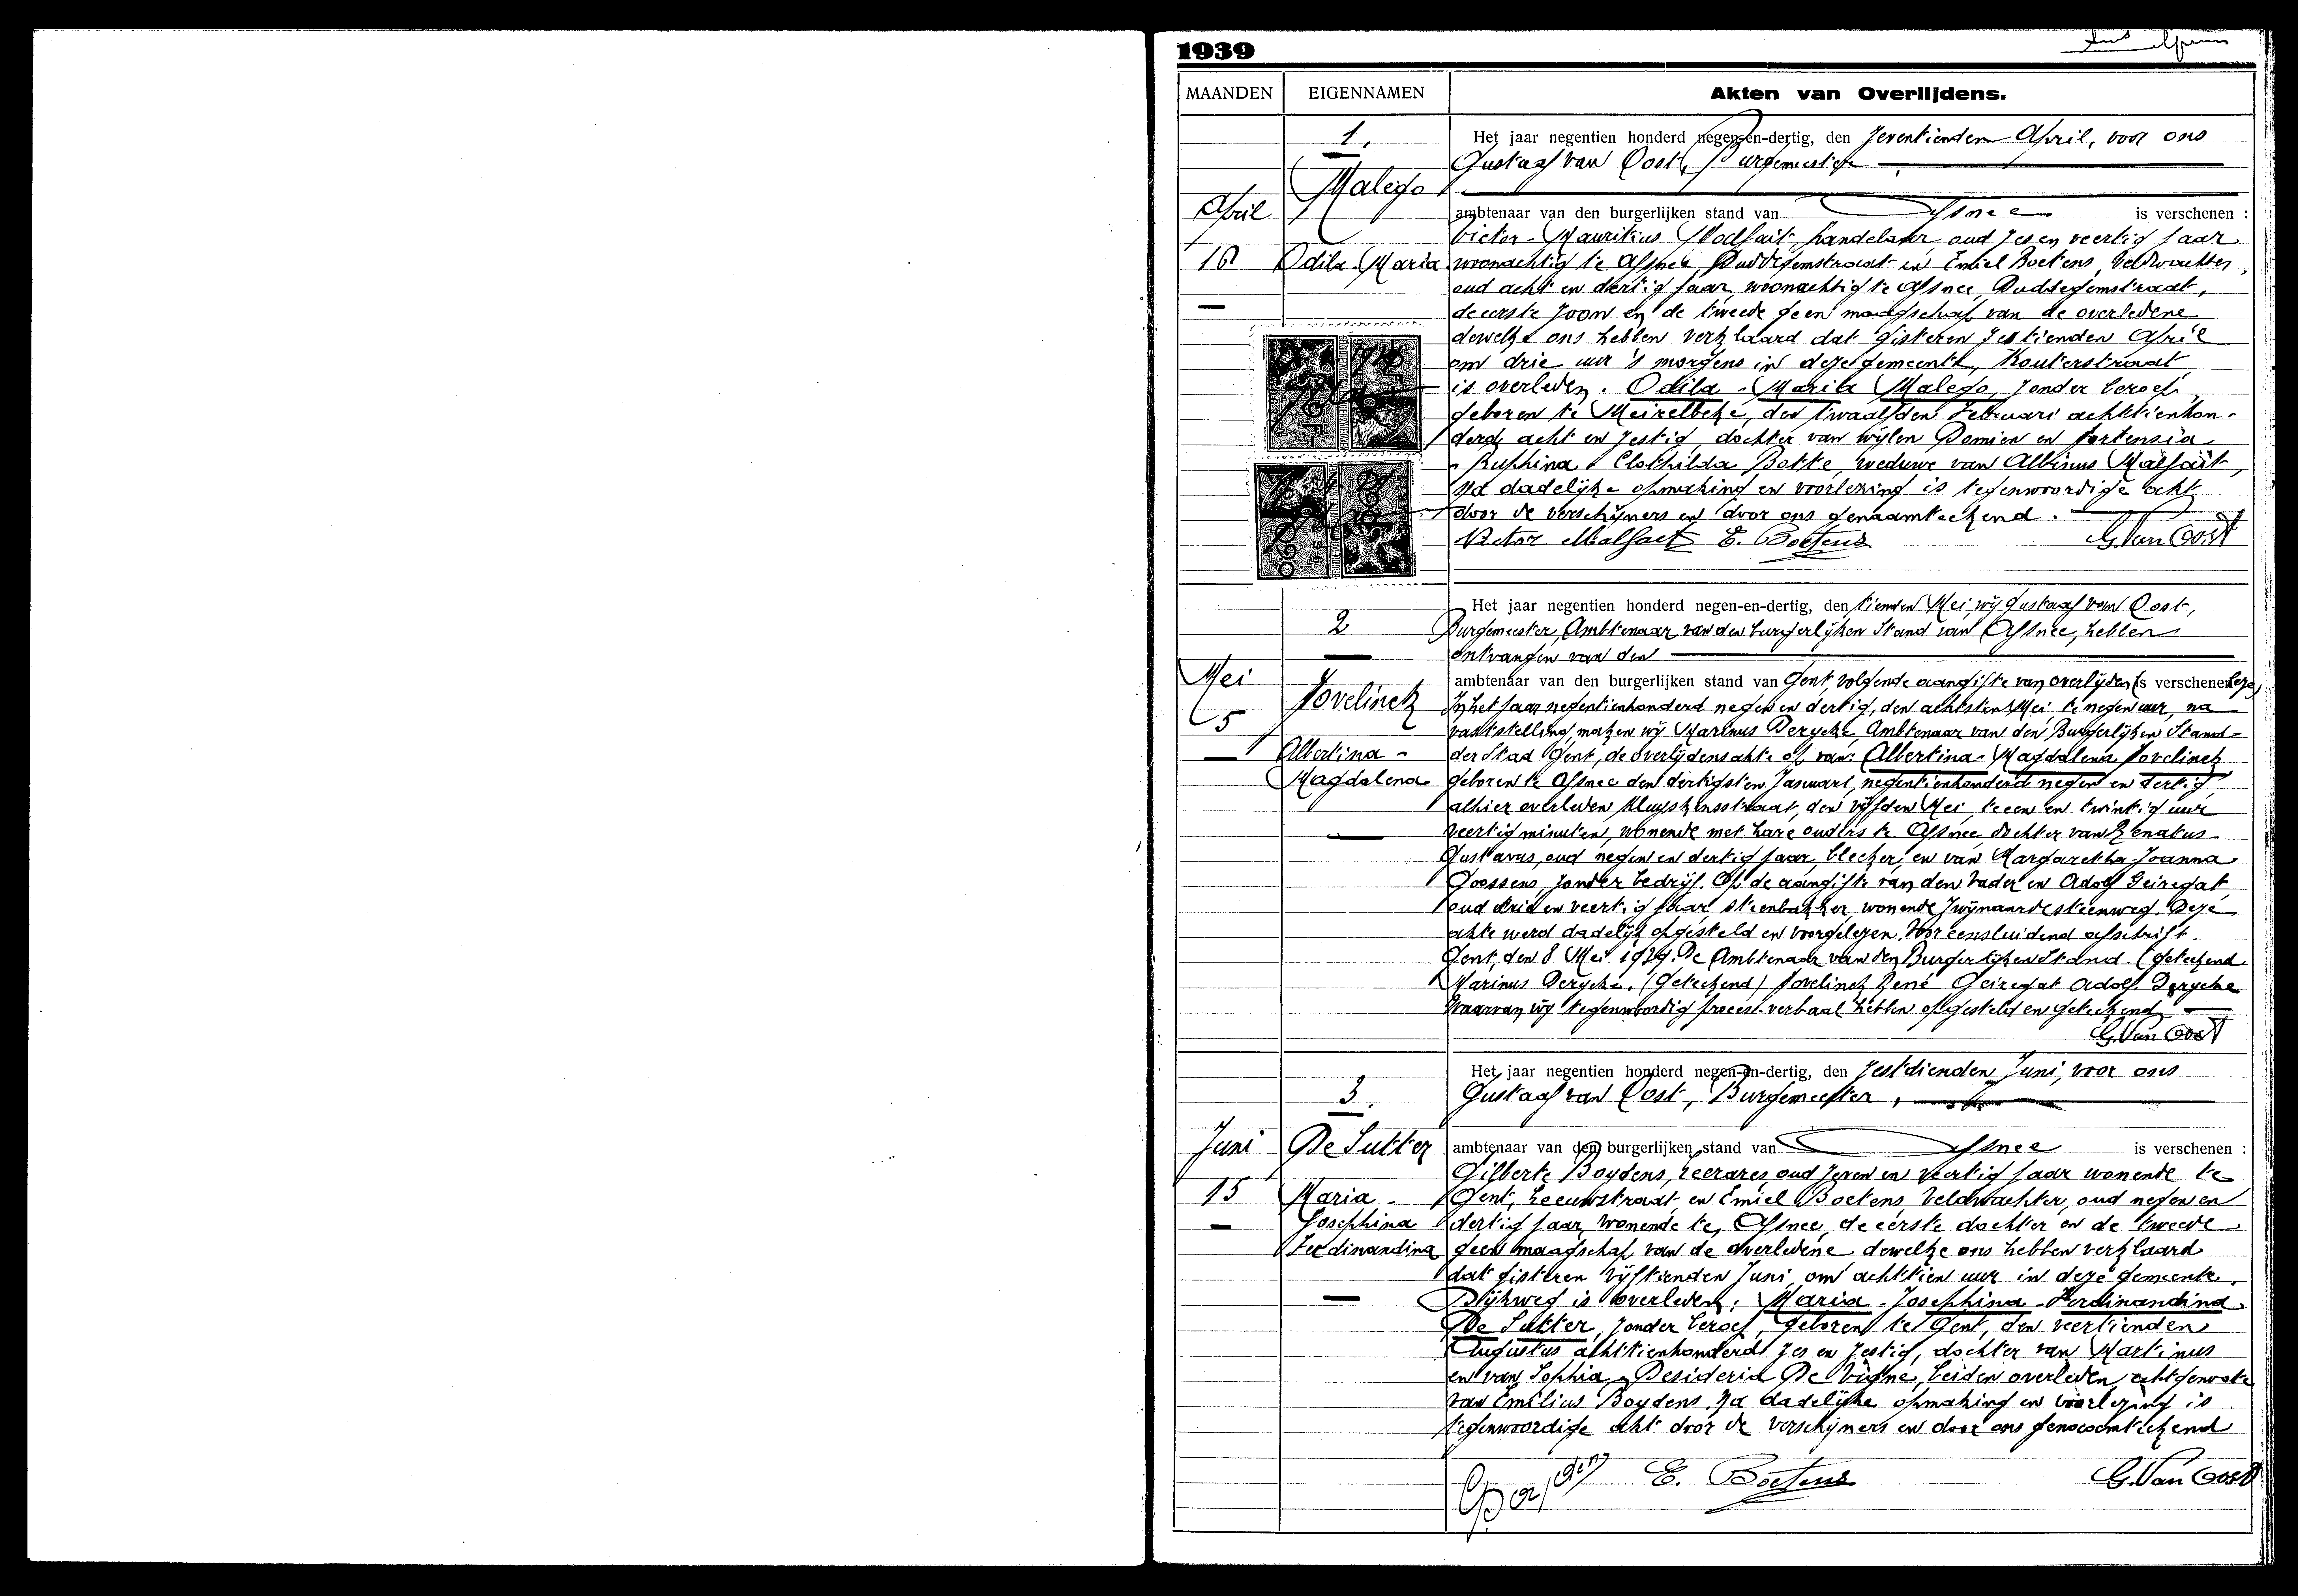 1939
MAANDEN
EIGENNAMEN
Akten van Overlijdens.
1.
Malego
April
16
Odila-Maria
Het jaar negentien honderd negen-en-dertig, den zeventienden April, voor ons
Gustaaf van Oost, Burgemeester
ambtenaar van den burgerlijken stand van Afsnee is verschenen :
Victor-Mauritius Malfait, handelaar, oud zes en veertig jaar
woonachtig te Afsnee, Duddegemstraat en Emiel Boetens, Veldwachter,
oud acht en dertig jaar, woonachtig te Afsnee, Duddegemstraat,
de eerste zoon en de tweede geen maagschap van de overledene
dewelke ons hebben verklaard dat gisteren zestienden April
om drie uur 's morgens in deze gemeente, Kouterstraat
is overleden. Odila-Maria Malego, zonder beroep,
geboren te Meirelbeke, den twaalfden Februari achttienhon-
derd acht en zestig, dochter van wijlen Damien en Hortensia
-Ruphina Clothilda Bekke, weduwe van Albinus Malfait,
Na dadelijke opmaking en voorlezing is tegenwoordige akt
door de verschijners en door ons genaamteekend.
Victor Malfait E. Boetens G. Van Oost
2
Mei
5
Hovelinck
Albertina-
Magdalena
Het jaar negentien honderd negen-en-dertig, den tienden Mei, wij Gustaaf van Oost,
Burgemeester, Ambtenaar van den burgerlijken Stand van Afsnee, hebben
ontvangen van den
ambtenaar van den burgerlijken stand van Gent, volgende aangifte van overlijden is verschenen
In het jaar negentienhonderd negen en dertig, den achtsten Mei, te negen uur, na
vaststelling, maken wij Marinus Derycke, Ambtenaar van den Burgerlijken Stand
der Stad Gent, de overlijdensakte op van: Albertina-Magdalena Hovelinck
geboren te Afsnee den dertigsten Januari, negentienhonderd negen en dertig
alhier overleden Kluyskensstraat, den vijfden Mei, te een en twintig uur
veertig minuten, wonende met hare ouders te Afsnee dochter van Renatus-
Gustavus, oud negen en dertig jaar, bleeker, en van Margaretha-Joanna
Goossens, zonder bedrijf. Op de aangifte van den vader en Adolf Geiregat
oud drie en veertig jaar, steenbakker, wonende Zwijnaardesteenweg. Deze
akte werd dadelijk opgesteld en voorgelezen. Voor eensluidend afschrift
Gent, den 8 Mei 1939. De Ambtenaar van den Burgerlijken Stand. (geteekend
Marinus Derycke. (Geteekend) Hovelinck René Geiregat Adolf. Derycke
Waarvan wij tegenwoordig proces-verbaal hebben opgesteld en geteekend
G. Van Oost
3.
Juni
15
De Sutter
Maria-
Josephina
Ferdinandina
Het jaar negentien honderd negen-en-dertig, den zestienden Juni, voor ons
Gustaaf van Oost, Burgemeester,
ambtenaar van den burgerlijken stand van Afsnee is verschenen :
Gilberte Boydens, leerares, oud zeven en veertig jaar wonende te
Gent, Leeuwstraat, en Emiel Boetens Veldwachter, oud negen en
dertig jaar, wonende te, Afsnee, de eerste dochter en de tweede
geen maagschap van de overledene dewelke ons hebben verklaard
dat gisteren vijftienden Juni, om achttien uur in deze gemeente.
Dijkweg is overleden, Maria-Josephina-Ferdinandina
De Sutter, zonder beroep, geboren te Gent, den veertienden
Augustus achttienhonderd zes en zestig, dochter van Martinus
en van Sophia-Desideria De Vigne, beiden overleden, echtgenoote
van Emilius Boydens, Na dadelijke opmaking en voorlezing is
tegenwoordige akt door de verschijners en door ons genaamteekend
E. Boetens G. Van Oost